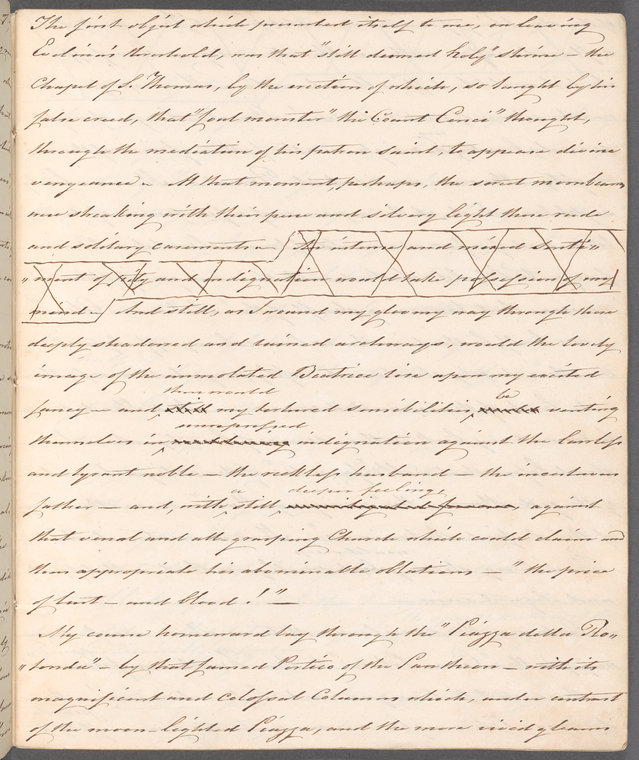 The first object which presented itself to me, on leaving
Evelina's threshold, was that "still deemed holy" shrine – the
Chapel of S. Thomas, by the erection of which, so taught by his
false creed, that "foul monster" "the Count Cenci" thought,
through the mediation of his patron saint, to appease divine
vengeance. At that moment, perhaps, the sweet moonbeams
are streaking with their pure and silvery light these rude
and solitary casements. – The intense and mixed senti"
"ment of pity and indignation would take possession of my
mind. And still, as I wound my gloomy way through these
deeply shadowed and ruined archways, would the lovely
image of the immolated Beatrice rise upon my excited
then would be
fancy – and my tortured sensibilities, venting
unrepressed
themselves in indignation against the lawless
and tyrant noble – the reckless husband – the incestuous
a deeper feeling,
father – and, with still, against
that venal and all grasping Church which could claim and
then appropriate his abominable oblations – "the price
of lust – and blood!" –
My course homeward lay through the "Piazza della Ro"
"tonda" – by that famed Portico of the Pantheon – with its
magnificent and colossal Columns which, under contrast
of the moon-lighted Piazza, and the more vivid gleams